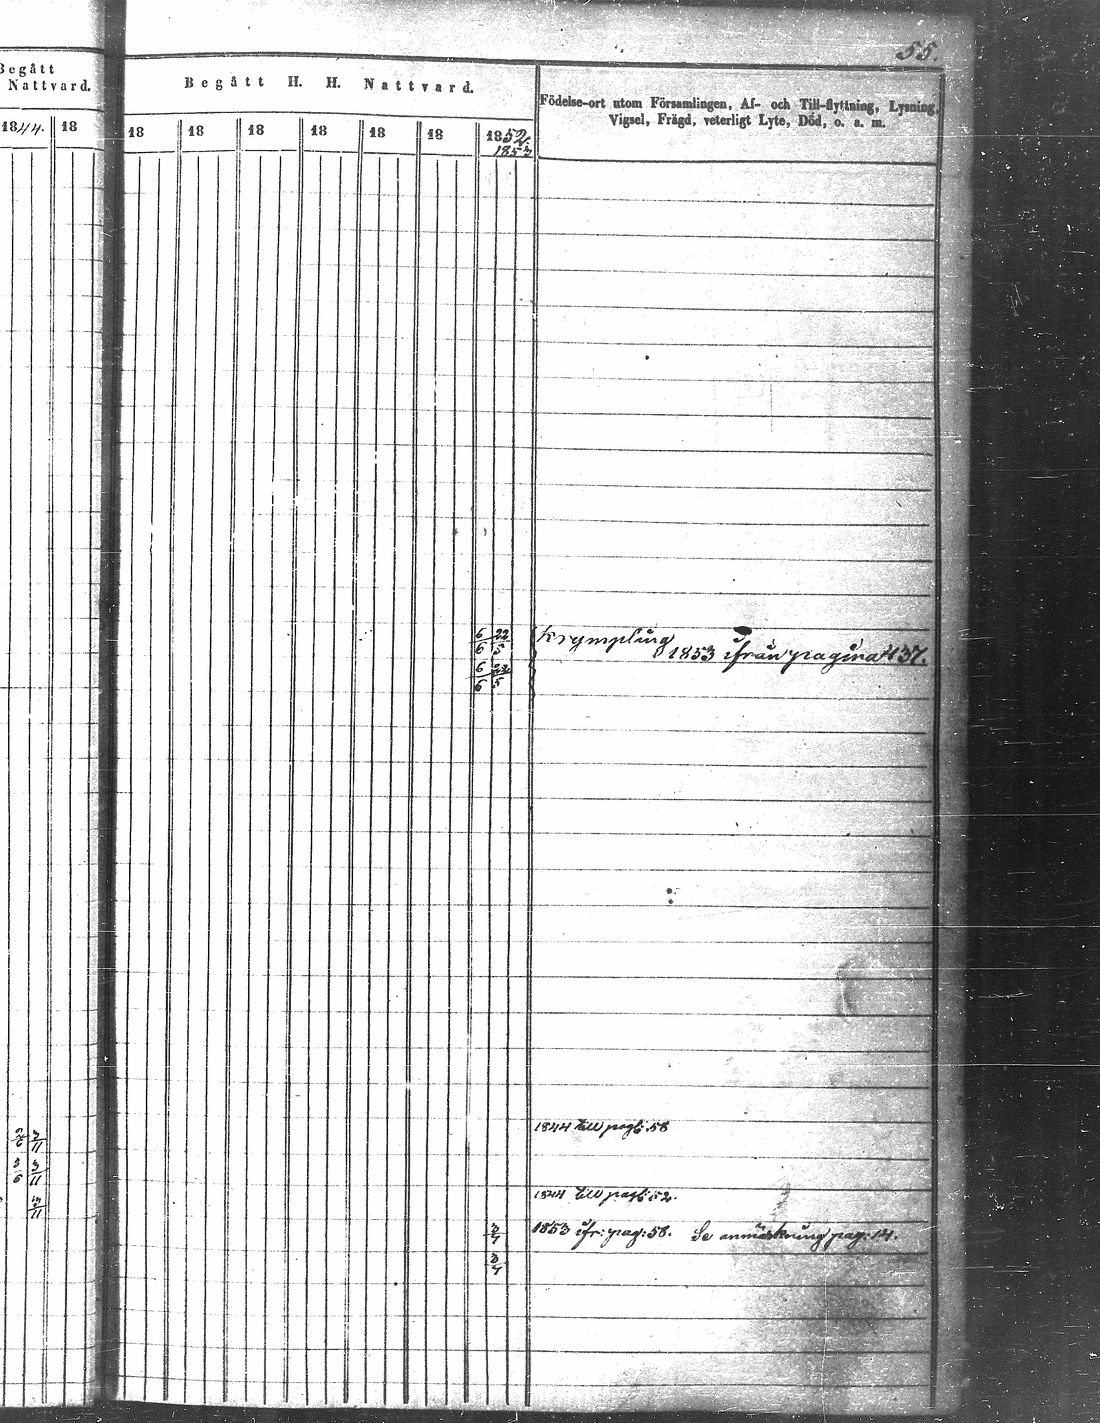 55.
Begått
Nattvard.
1844. 18
Begått H. H. Nattvard.
18 18 18 18 18 18 1852.
1853
Födelse-ort utom Församlingen, Af- och Till-flyttning, Lysning,
Vigsel, Frägd, veterligt Lyte, Död, o. a. m.
6/6 22/5 Krympling
1853 ifrån pagina 437.
6/6 22/5
2/6 3/11 1844 till pag: 58
2/6 3/11
3/11 1844 till pag: 52.
3/4 1853 ifr: pag: 58. Se anmärkning pag: 14.
3/4